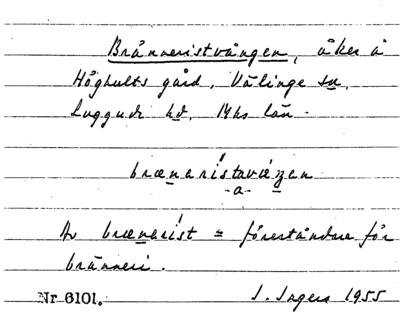 Bränneristvången, åker å
Höghults gård, Välinge sn,
Luggude hd. Mhs län.
brænarístəváŋən
-a-
Av brænaríst = föreståndare för
bränneri.
Nr 6101. I. Ingers 1955